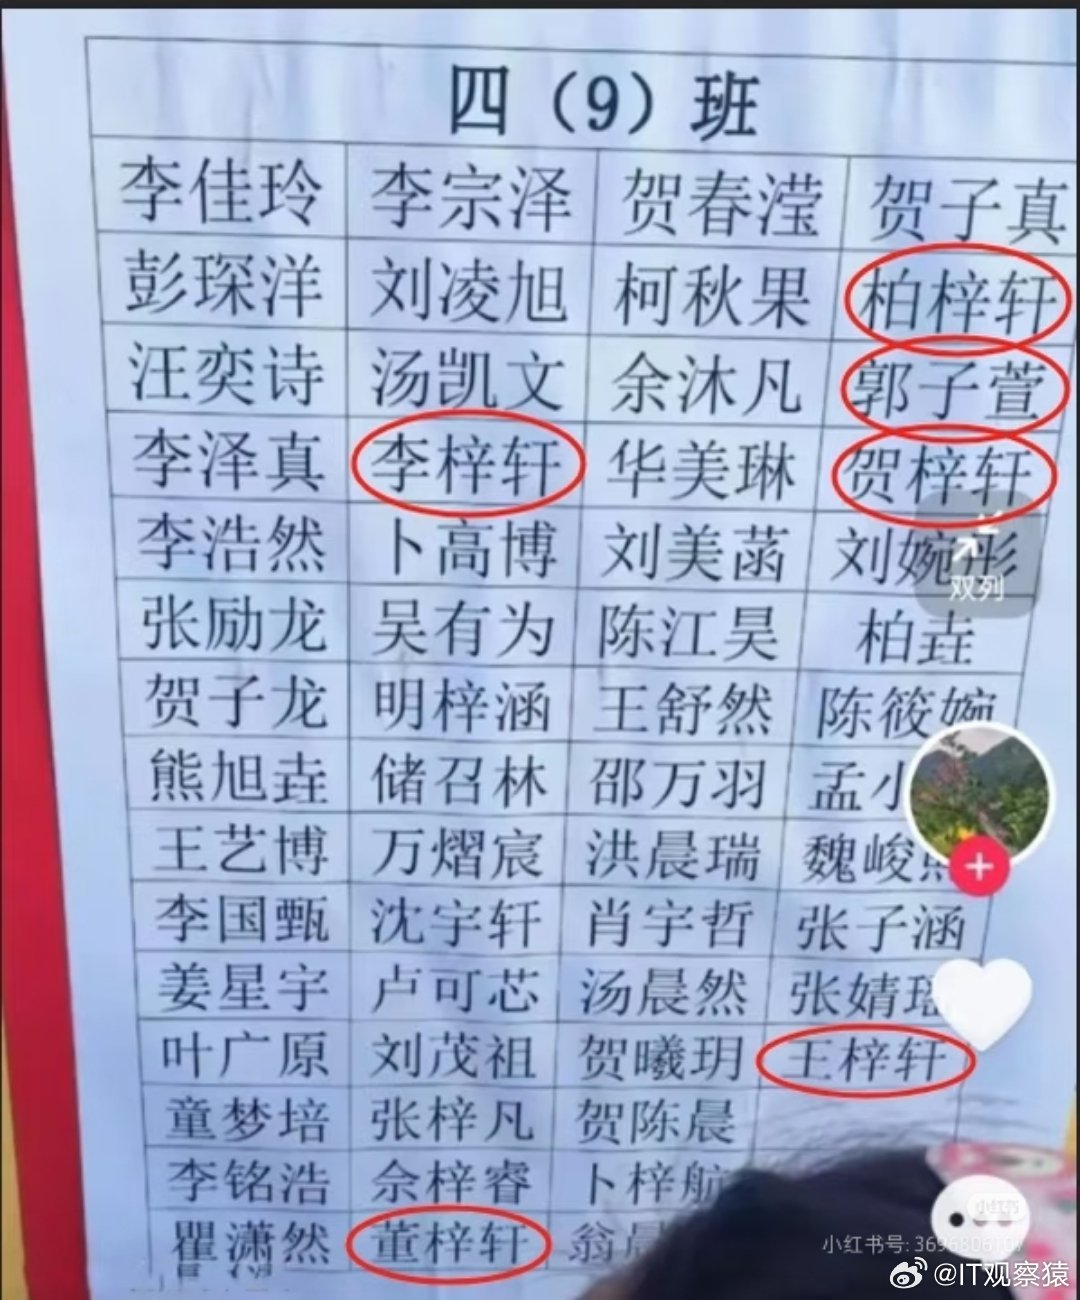 四（9）班
李佳玲 李宗泽 贺春滢 贺子真
彭琛洋 刘凌旭 柯秋果 柏梓轩
汪奕诗 汤凯文 余沐凡 郭子萱
李泽真 李梓轩 华美琳 贺梓轩
李浩然 卜高博 刘美菡 刘婉彤
双列
张励龙 吴有为 陈江昊 柏垚
贺子龙 明梓涵 王舒然 陈筱婉
熊旭垚 储召林 邵万羽 孟小
王艺博 万熠宸 洪晨瑞 魏峻
李国甄 沈宇轩 肖宇哲 张子涵
姜星宇 卢可芯 汤晨然 张婧瑶
叶广原 刘茂祖 贺曦玥 王梓轩
童梦培 张梓凡 贺陈晨
李铭浩 佘梓睿 卜梓航
瞿潇然 董梓轩 翁晨
小红书
小红书号:
@IT观察猿